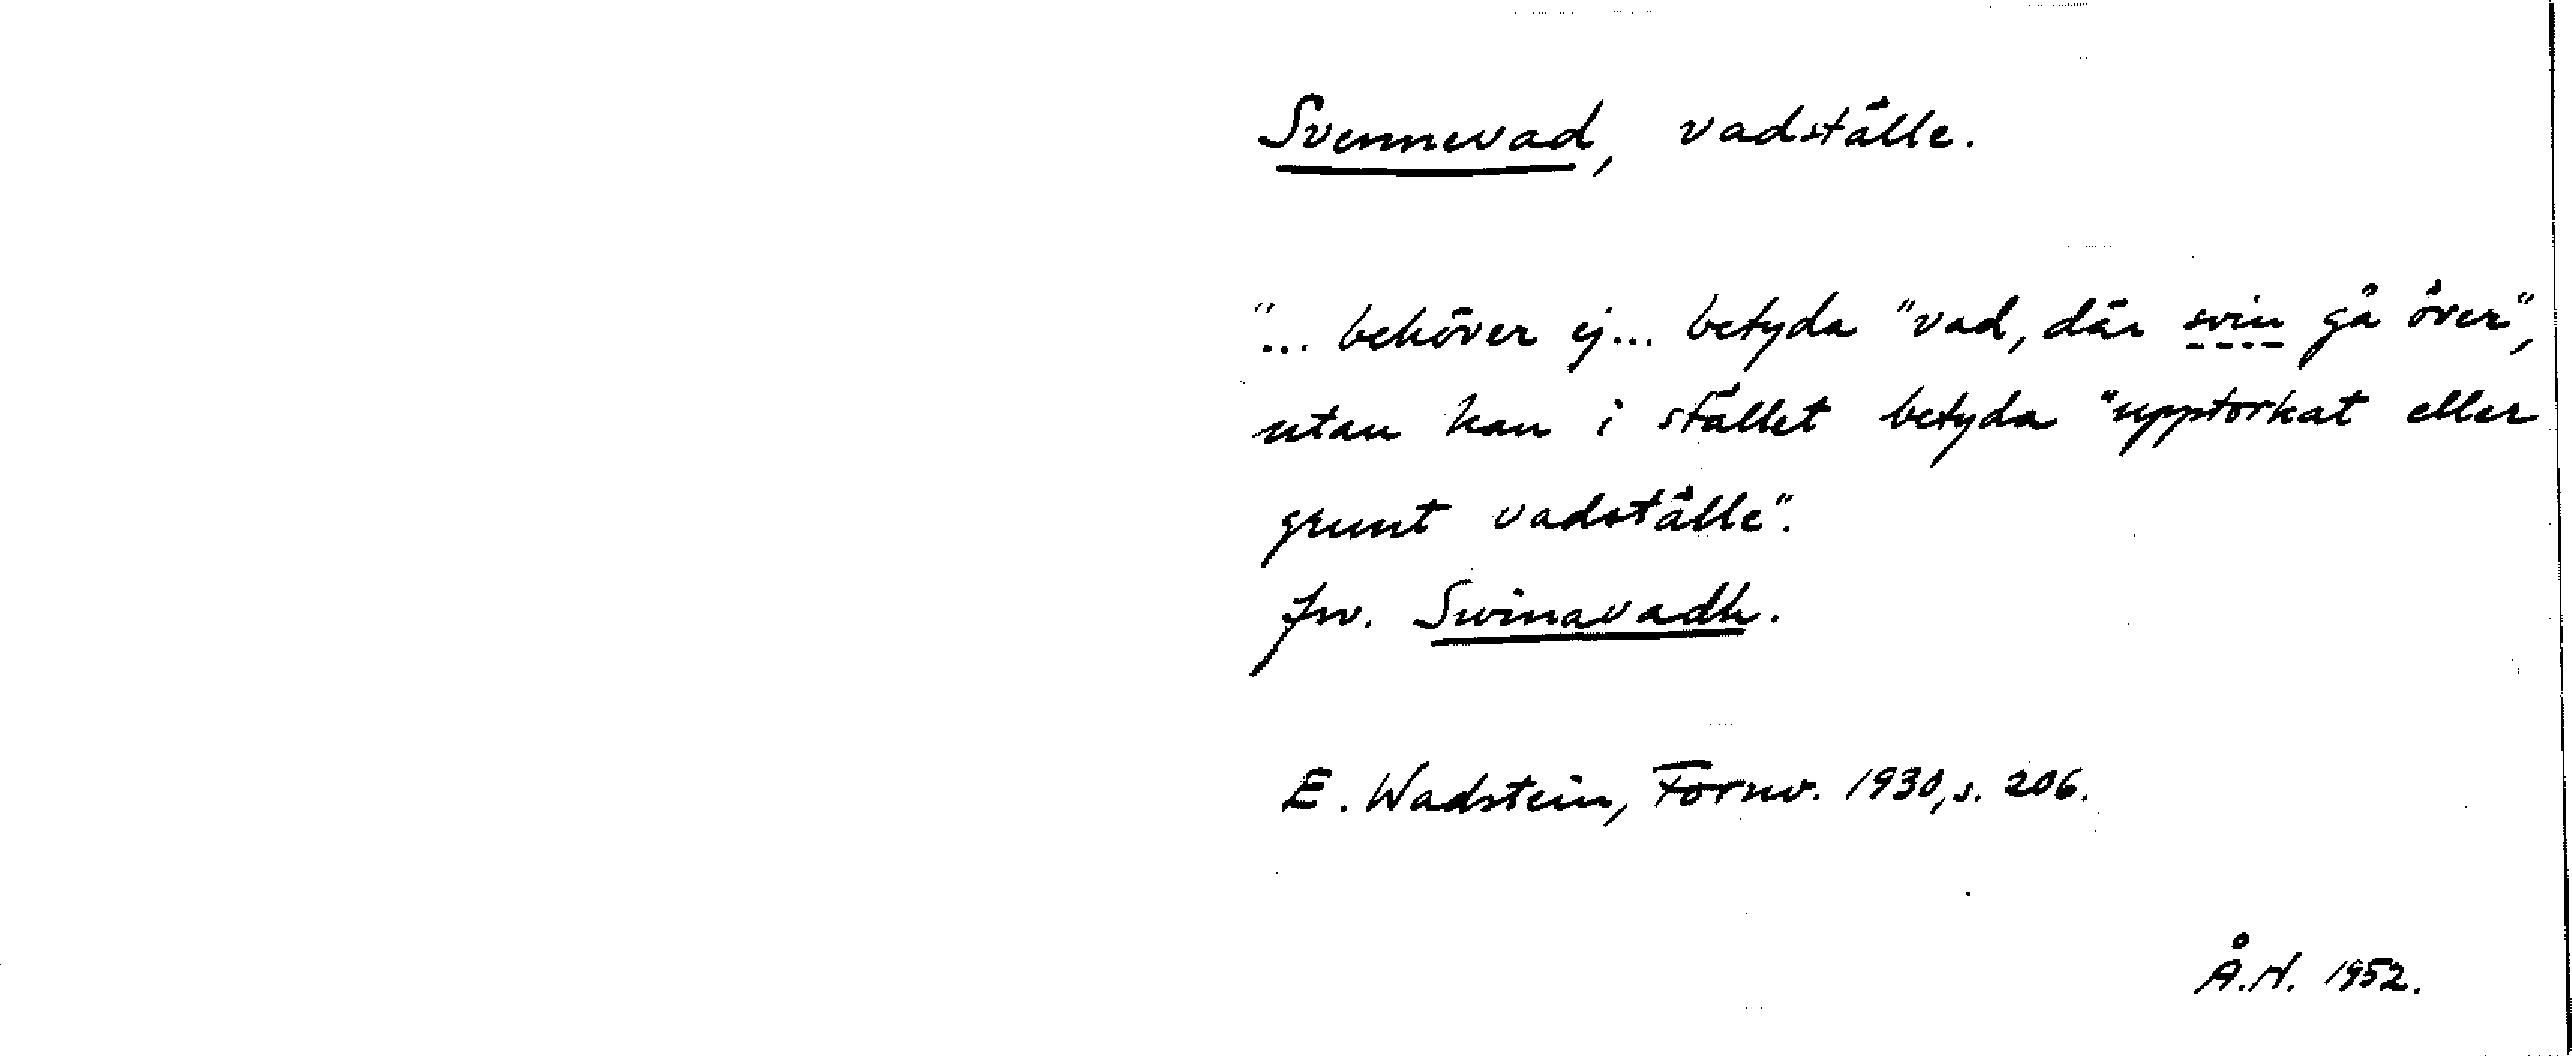 Svennevad, vadställe.
"... behöver ej... betyda "vad, där svin gå över",
utan kan i stället betyda "upptorkat eller
grunt vadställe".
fsv. Swinavadh.
E. Wadstein, Fornv. 1930, s. 206.
Å.N. 1952.